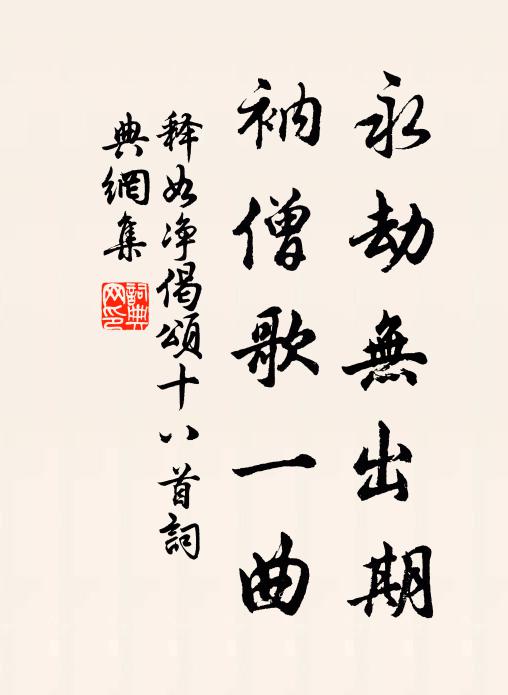 永劫無出期
衲僧歌一曲
释如净偈頌十八首詞
典網集
詞典
网印